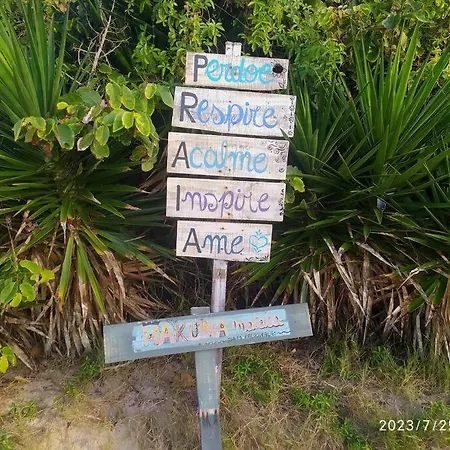 Perdoe
Respire
Acalme
Inspire
Ame
MAKUNA
2023/7/25